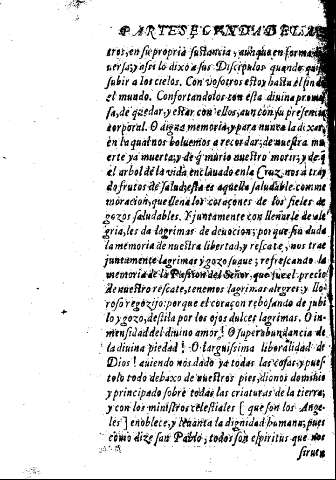 PARTE SEGVNDA DE LA
tros, en su propria sustancia, aunque en forma
uersa, y assi lo dixo a sus Discipulos quando
subir a los cielos. Con vosotros estoy hasta el fin
el mundo. Confortandolos con esta diuina prome
sa, de quedar, y estar con ellos, aun con su presencia
corporal. O digna memoria, y para nunca la dixar,
en la qual nos boluemos a recordar, de nuestra mu
erte ya muerta; y de q̃ murio nuestro morir; y de q̃
el arbol de la vida enclauado en la Cruz, nos a tray
do frutos de salud, esta es aquella saludable comme
moracion, que llena los coraçones de los fieles de
gozos saludables. Y juntamente con llenarle de ale
gria, les da lagrimas de deuocion; porque sin duda
la memoria de nuestra libertad, y rescate, nos trae
juntamente lagrimas y gozo suaue; refrescando la
memoria de la Passion del Señor, que fue el precio
de nuestro rescate, tenemos lagrimas alegres; y llo
roso regozijo: porque el coraçon rebosando de jubi
lo y gozo, destila por los ojos dulces lagrimas. O in-
mensidad del diuino amor! O superabundancia de
la diuina piedad! O larguissima liberalidad de
Dios! auiendo nos dado ya todas las cosas, y pues
tolo todo debaxo de nuestros pies, dionos dominio
y principado sobre todas las criaturas de la tierra;
y con los ministros celestiales [ que son los Ange-
les ] enoblece, y leuanta la dignidad humana; pues
como dize san Pablo, todos son espiritus que nos
siruen